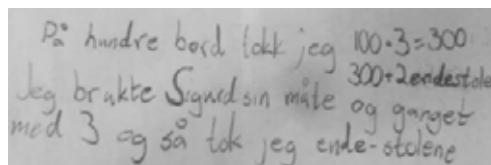 På hundre bord tokk jeg 100·3=300
300+2endestole
Jeg brukte Sigurd sin måte og ganget
med 3 og så tok jeg ende-stolene